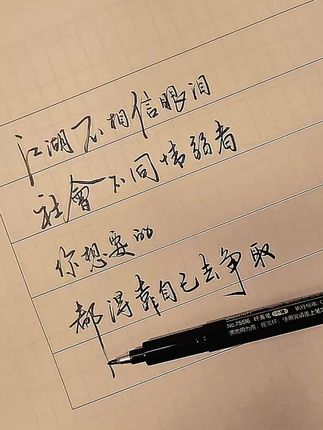 江湖不相信眼泪
社會不同情弱者
你想要的
都得靠自己去争取